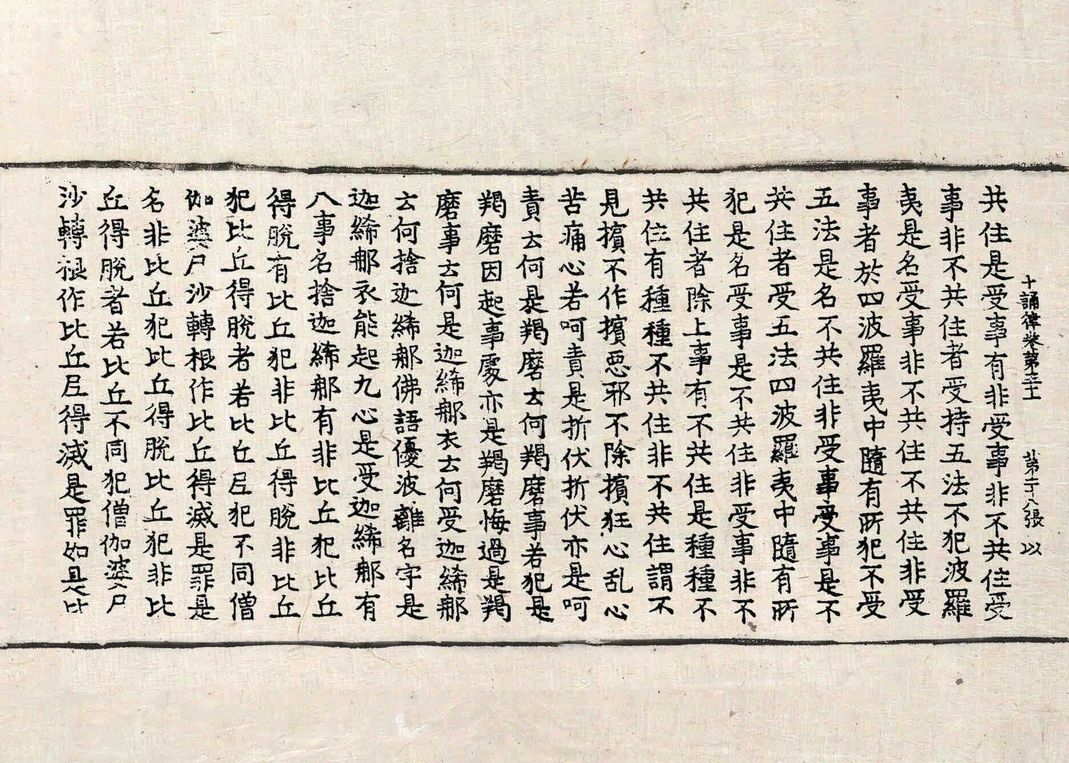 十誦律卷第五十 第二十八張 以
共住是受事有非受事非不共住受
事非不共住者受持五法不犯波羅
夷是名受事非不共住不共住非受
事者於四波羅夷中隨有所犯不受
五法是名不共住非受事受事是不
共住者受五法四波羅夷中隨有所
犯是名受事是不共住非受事非不
共住者除上事有不共住是種種不
共住有種種不共住非不共住謂不
見擯不作擯惡邪不除擯狂心乱心
苦痛心若呵責是折伏折伏亦是呵
責云何是羯磨云何羯磨事若犯是
羯磨因起事處亦是羯磨悔過是羯
磨事云何是迦絺那衣云何受迦絺那
云何捨迦絺那佛語優波離名字是
迦絺那衣能起九心是受迦絺那有
八事名捨迦絺那有非比丘犯比丘
得脫有比丘犯非比丘得脫非比丘
犯比丘得脫者若比丘尼犯不同僧
伽婆尸沙轉根作比丘得滅是罪是
名非比丘犯比丘得脫比丘犯非比
丘得脫者若比丘不同犯僧伽婆尸
沙轉根作比丘尼得滅是罪如是比